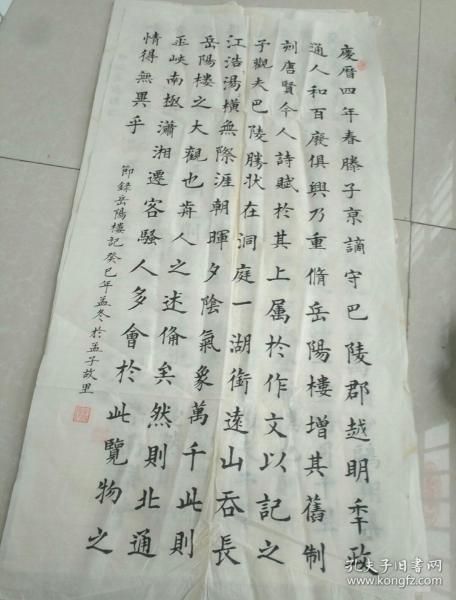 慶曆四年春滕子京謫守巴陵郡越明年政
通人和百廢俱興乃重脩岳陽樓增其舊制
刻唐賢今人詩賦於其上屬於作文以記之
予觀夫巴陵勝狀在洞庭一湖銜遠山吞長
江浩湯橫無際涯朝暉夕陰氣象萬千此則
岳陽樓之大觀也前人之述備矣然則北通
巫峽南極瀟湘遷客騷人多會於此覽物之
情得無異乎
節錄岳陽樓記癸巳年孟冬於孟子故里
孔夫子旧书网
www.kongfz.com